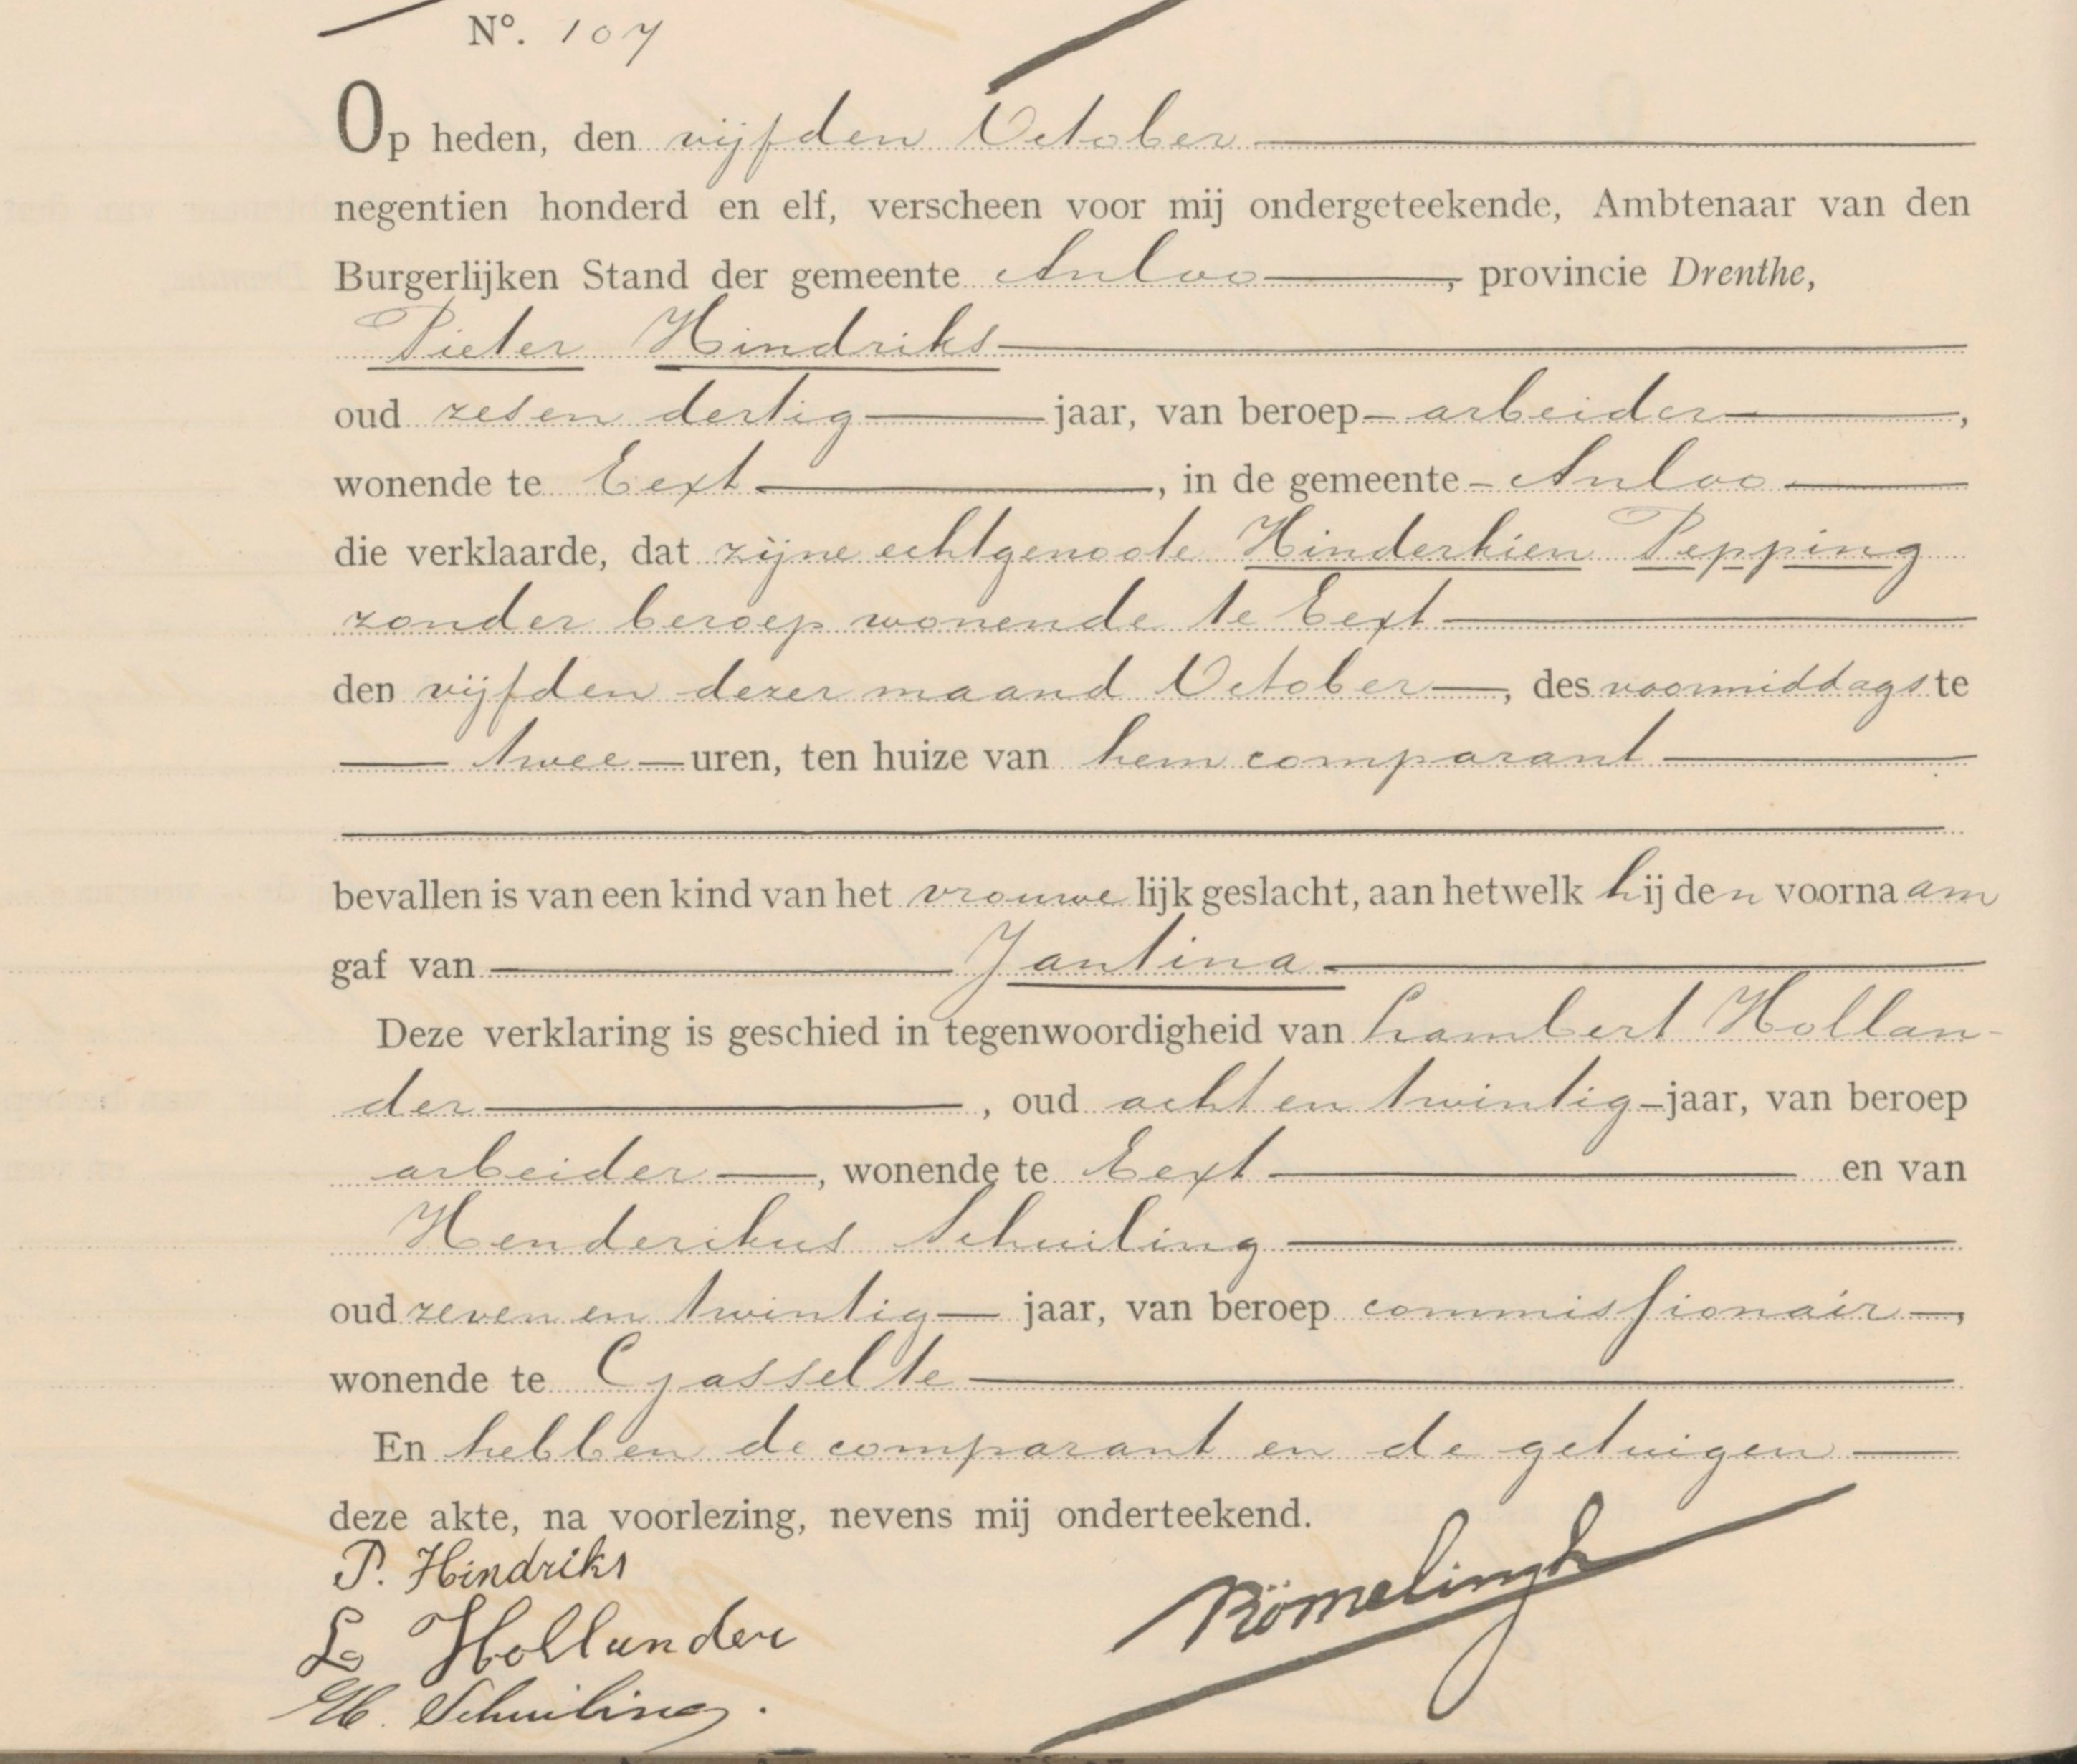 Nº. 107
Op heden, den vijfden October
negentien honderd en elf, verscheen voor mij ondergeteekende, Ambtenaar van den
Burgerlijken Stand der gemeente Anloo, provincie Drenthe,
Pieter Hindriks
oud zesen dertig jaar, van beroep arbeider,
wonende te Eext, in de gemeente Anloo
die verklaarde, dat zijne echtgenoote Hinderkien Pepping
zonder beroep wonende te Eext
den vijfden dezer maand October, des voormiddags te
twee uren, ten huize van hem comparant
bevallen is van een kind van het vrouwelijk geslacht, aan hetwelk hij den voornaam
gaf van Jantina
Deze verklaring is geschied in tegenwoordigheid van Lambert Hollan-
der, oud acht en twintig jaar, van beroep
arbeider, wonende te Eext en van
Henderikus Schuiling
oud zeven en twintig jaar, van beroep commissionair,
wonende te Gasselte
En hebben de comparant en de getuigen
deze akte, na voorlezing, nevens mij onderteekend.
P. Hindriks
L Hollander
H. Schuiling.
Römelingh